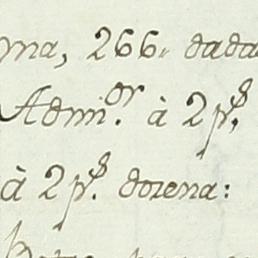 ma, 266,, dada
Admi.or à 2 p.s,
à 2 p.s dozena: